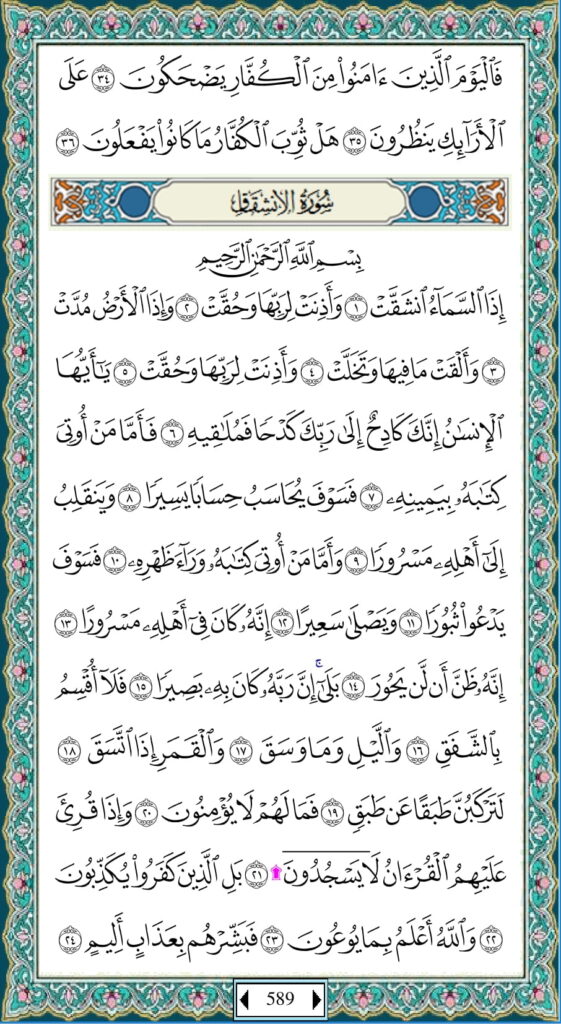 فَٱلۡيَوۡمَ ٱلَّذِينَ ءَامَنُواْ مِنَ ٱلۡكُفَّارِ يَضۡحَكُونَ ٣٤ عَلَى
ٱلۡأَرَآئِكِ يَنظُرُونَ ٣٥ هَلۡ ثُوِّبَ ٱلۡكُفَّارُ مَا كَانُواْ يَفۡعَلُونَ ٣٦
سُورَةُ الانشِقَاقِ
بِسۡمِ ٱللَّهِ ٱلرَّحۡمَٰنِ ٱلرَّحِيمِ
إِذَا ٱلسَّمَآءُ ٱنشَقَّتۡ ١ وَأَذِنَتۡ لِرَبِّهَا وَحُقَّتۡ ٢ وَإِذَا ٱلۡأَرۡضُ مُدَّتۡ
٣ وَأَلۡقَتۡ مَا فِيهَا وَتَخَلَّتۡ ٤ وَأَذِنَتۡ لِرَبِّهَا وَحُقَّتۡ ٥ يَٰٓأَيُّهَا
ٱلۡإِنسَٰنُ إِنَّكَ كَادِحٌ إِلَىٰ رَبِّكَ كَدۡحٗا فَمُلَٰقِيهِ ٦ فَأَمَّا مَنۡ أُوتِيَ
كِتَٰبَهُۥ بِيَمِينِهِۦ ٧ فَسَوۡفَ يُحَاسَبُ حِسَابٗا يَسِيرٗا ٨ وَيَنقَلِبُ
إِلَىٰٓ أَهۡلِهِۦ مَسۡرُورٗا ٩ وَأَمَّا مَنۡ أُوتِيَ كِتَٰبَهُۥ وَرَآءَ ظَهۡرِهِۦ ١٠ فَسَوۡفَ
يَدۡعُواْ ثُبُورٗا ١١ وَيَصۡلَىٰ سَعِيرًا ١٢ إِنَّهُۥ كَانَ فِيٓ أَهۡلِهِۦ مَسۡرُورًا ١٣
إِنَّهُۥ ظَنَّ أَن لَّن يَحُورَ ١٤ بَلَىٰٓۚ إِنَّ رَبَّهُۥ كَانَ بِهِۦ بَصِيرٗا ١٥ فَلَآ أُقۡسِمُ
بِٱلشَّفَقِ ١٦ وَٱلَّيۡلِ وَمَا وَسَقَ ١٧ وَٱلۡقَمَرِ إِذَا ٱتَّسَقَ ١٨
لَتَرۡكَبُنَّ طَبَقًا عَن طَبَقٖ ١٩ فَمَا لَهُمۡ لَا يُؤۡمِنُونَ ٢٠ وَإِذَا قُرِئَ
عَلَيۡهِمُ ٱلۡقُرۡءَانُ لَا يَسۡجُدُونَۤ ۩ ٢١ بَلِ ٱلَّذِينَ كَفَرُواْ يُكَذِّبُونَ
٢٢ وَٱللَّهُ أَعۡلَمُ بِمَا يُوعُونَ ٢٣ فَبَشِّرۡهُم بِعَذَابٍ أَلِيمٍ ٢٤
589